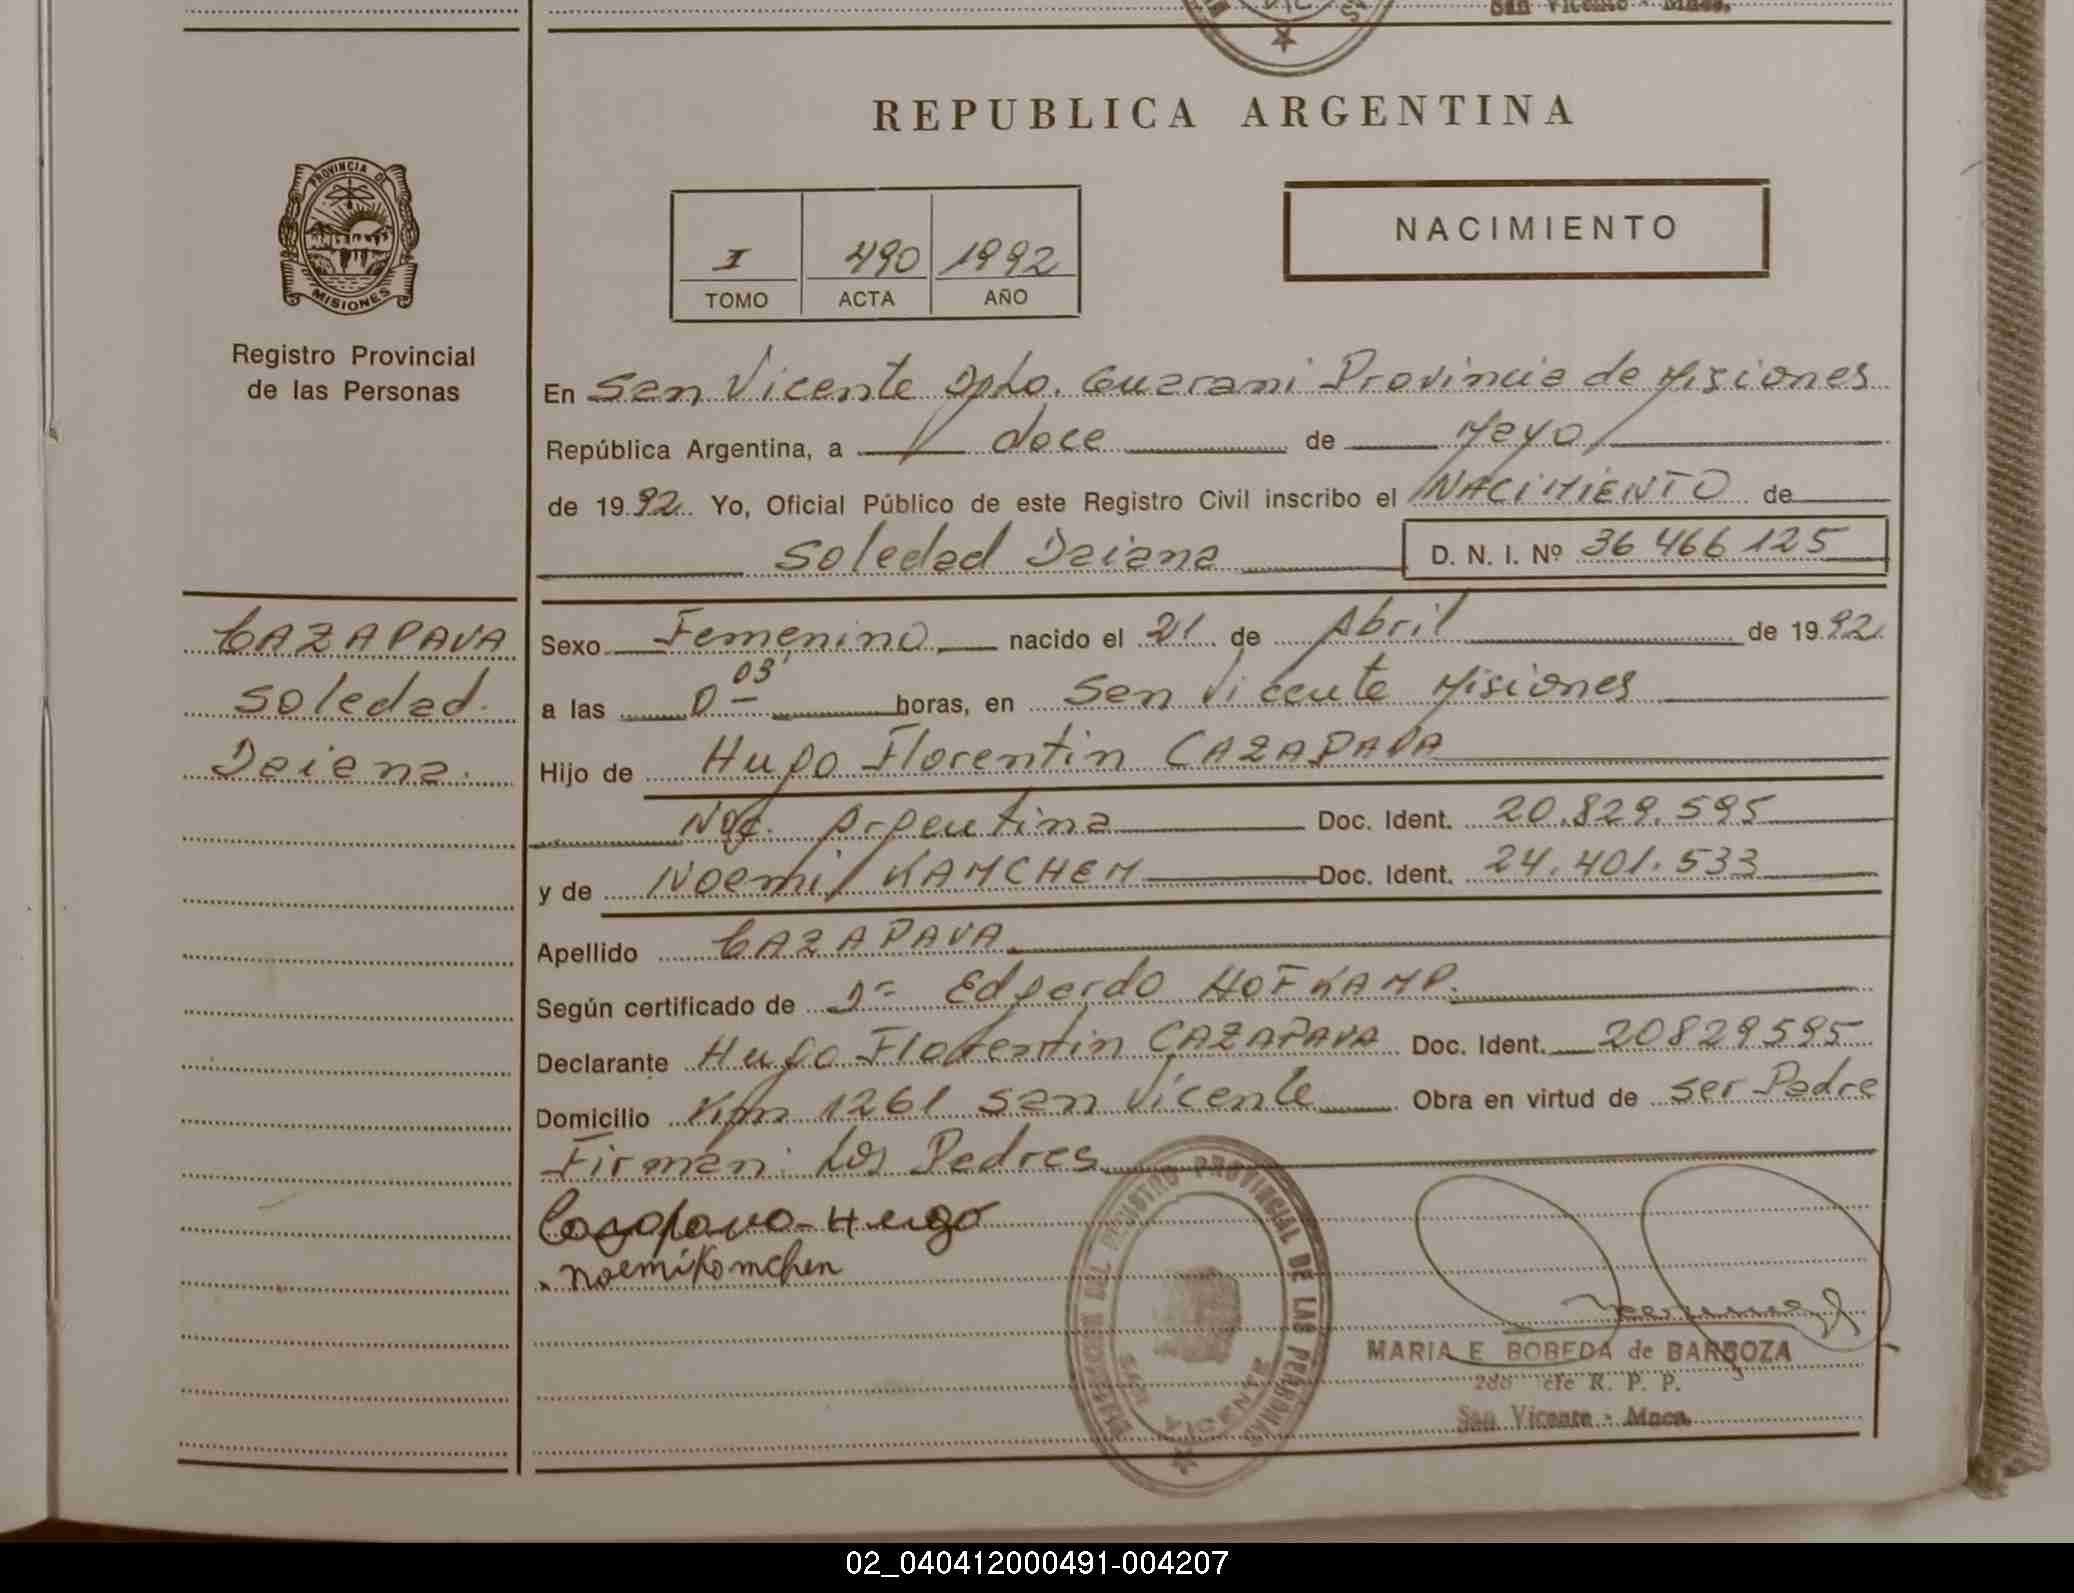 San Vicente - Mnes.
REPUBLICA ARGENTINA
PROVINCIA DE
MISIONES
Registro Provincial
de las Personas
I 490 1992
TOMO ACTA AÑO
NACIMIENTO
En San Vicente Dpto. Guarani Provincia de Misiones
República Argentina, a doce de Mayo
de 1992 Yo, Oficial Público de este Registro Civil inscribo el NACIMIENTO de
Soledad Daiana D. N. I. Nº 36 466 125
CAZAPAVA
Soledad
Daiana.
Sexo Femenino nacido el 21 de Abril de 1992
a las 0 03' horas, en San Vicente Misiones
Hijo de Hugo Florentin CAZAPAVA
Nac. Argentina Doc. Ident. 20.829.595
y de Noemi KAMCHEM Doc. Ident. 24.401.533
Apellido CAZAPAVA
Según certificado de Edgardo HOFKAMP.
Declarante Hugo Florentin CAZAPAVA Doc. Ident. 20829595
Domicilio Km 1261 San Vicente Obra en virtud de ser Padre
Firman: Los Padres
Cazapava - Hugo
Noemi Komchen
DEL REGISTRO PROVINCIAL DE LAS PERSONAS
SAN VICENTE
MARIA E. BOBEDA de BARBOZA
2do Jefe R. P. P.
San Vicente - Mnes.
02_040412000491-004207